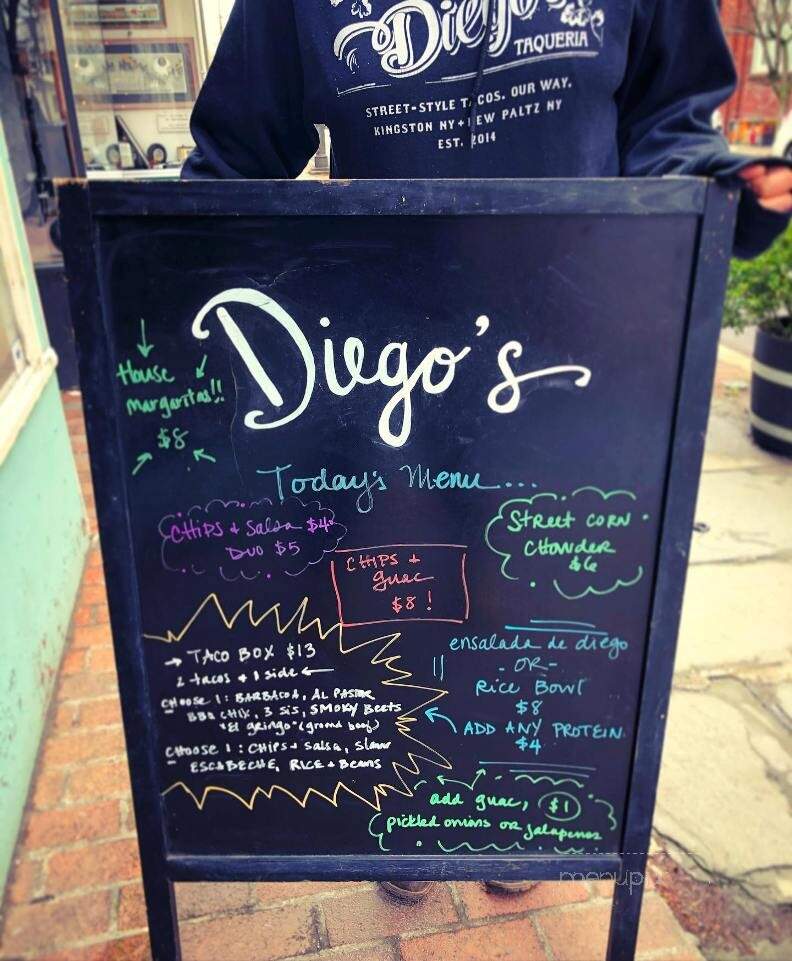 Diego's
TAQUERIA
STREET-STYLE TACOS. OUR WAY.
KINGSTON NY + NEW PALTZ NY
EST. 2014
Diego's
House
margaritas!!
$8
Today's Menu....
CHIPS + Salsa $4
DUO $5
STREET CORN
CHOWDER
$6
CHIPS +
guac
$8!
→ TACO BOX $13
2 tacos + 1 side ←
CHOOSE 1: BARBACOA, AL PASTOR,
BBQ CHIX, 3 SIS, SMOKY BEETS
"El gringo" (ground beef)
CHOOSE 1: CHIPS + SALSA, Slaw
ESCABECHE, RICE + BEANS
ensalada de diego
- OR -
RICE BOWL
$8
ADD ANY PROTEIN
$4
add guac, $1
pickled onions or jalapenos
menupix